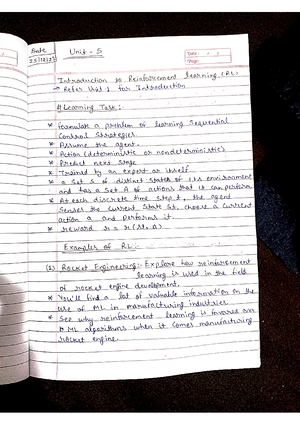 Date
25/12/23
Unit - 5
Date: / /
Page:
Introduction to Reinforcement learning (RL)
→ Refer Unit 1 for Introduction
# Learning Task:-
* Formulate a problem of learning Sequential
Control Strategies
* Assume the agent.
* Action (deterministic or nondeterministic)
* Predict next stage
* Trained by an expert or itself
* a Set S of distinct states of its environment
and has a Set A of actions that it can perform
* At each discrete time step t, the agent
Senses the current State St, choose a current
action a and performs it.
* reward r = r(st, a)
Examples of RL:-
(1) Rocket Engineering:- Explore how reinforcement
learning is used in the field
of rocket engine development.
* You'll find a lot of valuable information on the
use of ML in manufacturing industries.
* See why reinforcement learning is favored over
ML algorithms when it comes manufacturing
rocket engine.